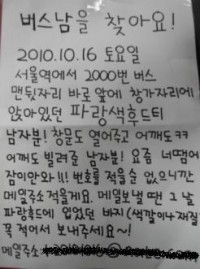 버스남을 찾아요!
2010.10.16 토요일
서울역에서 2000번 버스
맨뒷자리 바로 앞에 창가자리에
앉아있던 파랑색후드티
남자분! 창문도 열어주고 어깨도ㅋㅋ
어깨도 빌려준 남자분! 요즘 너땜에
잠이안와!! 번호를 적을순 없으니깐
메일주소적을게요. 메일보낼때 그 날
파랑후드에 입었던 바지(색깔이나재질
꼭 적어서 보내주세요~!
메일주소